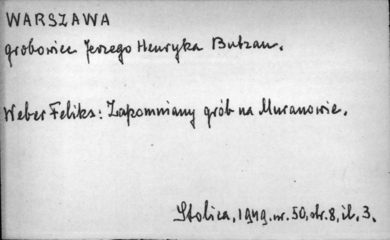 WARSZAWA
grobowiec Jerzego Henryka Butzau.
Weber Feliks: Zapomniany grób na Muranowie.
Stolica, 1949. nr. 50, str. 8, il. 3.